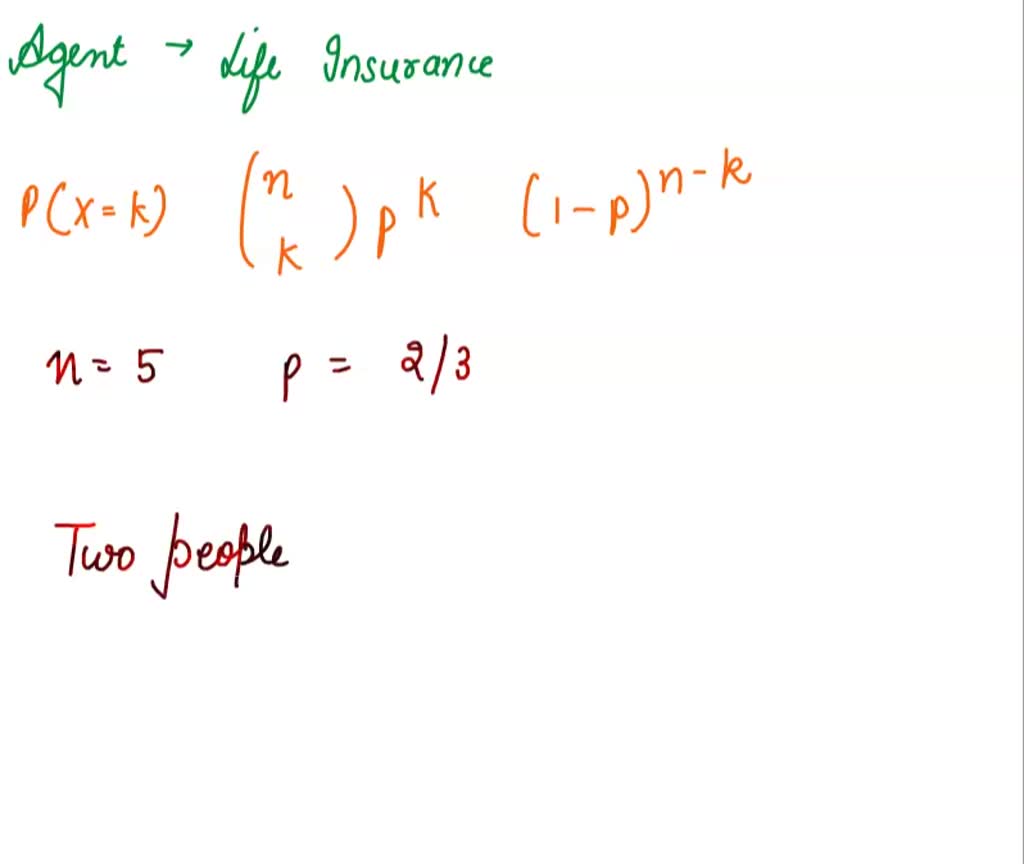 Agent → Life Insurance
P(X=k) (n k) p^k (1-p)^n-k
n = 5 p = 2/3
Two people